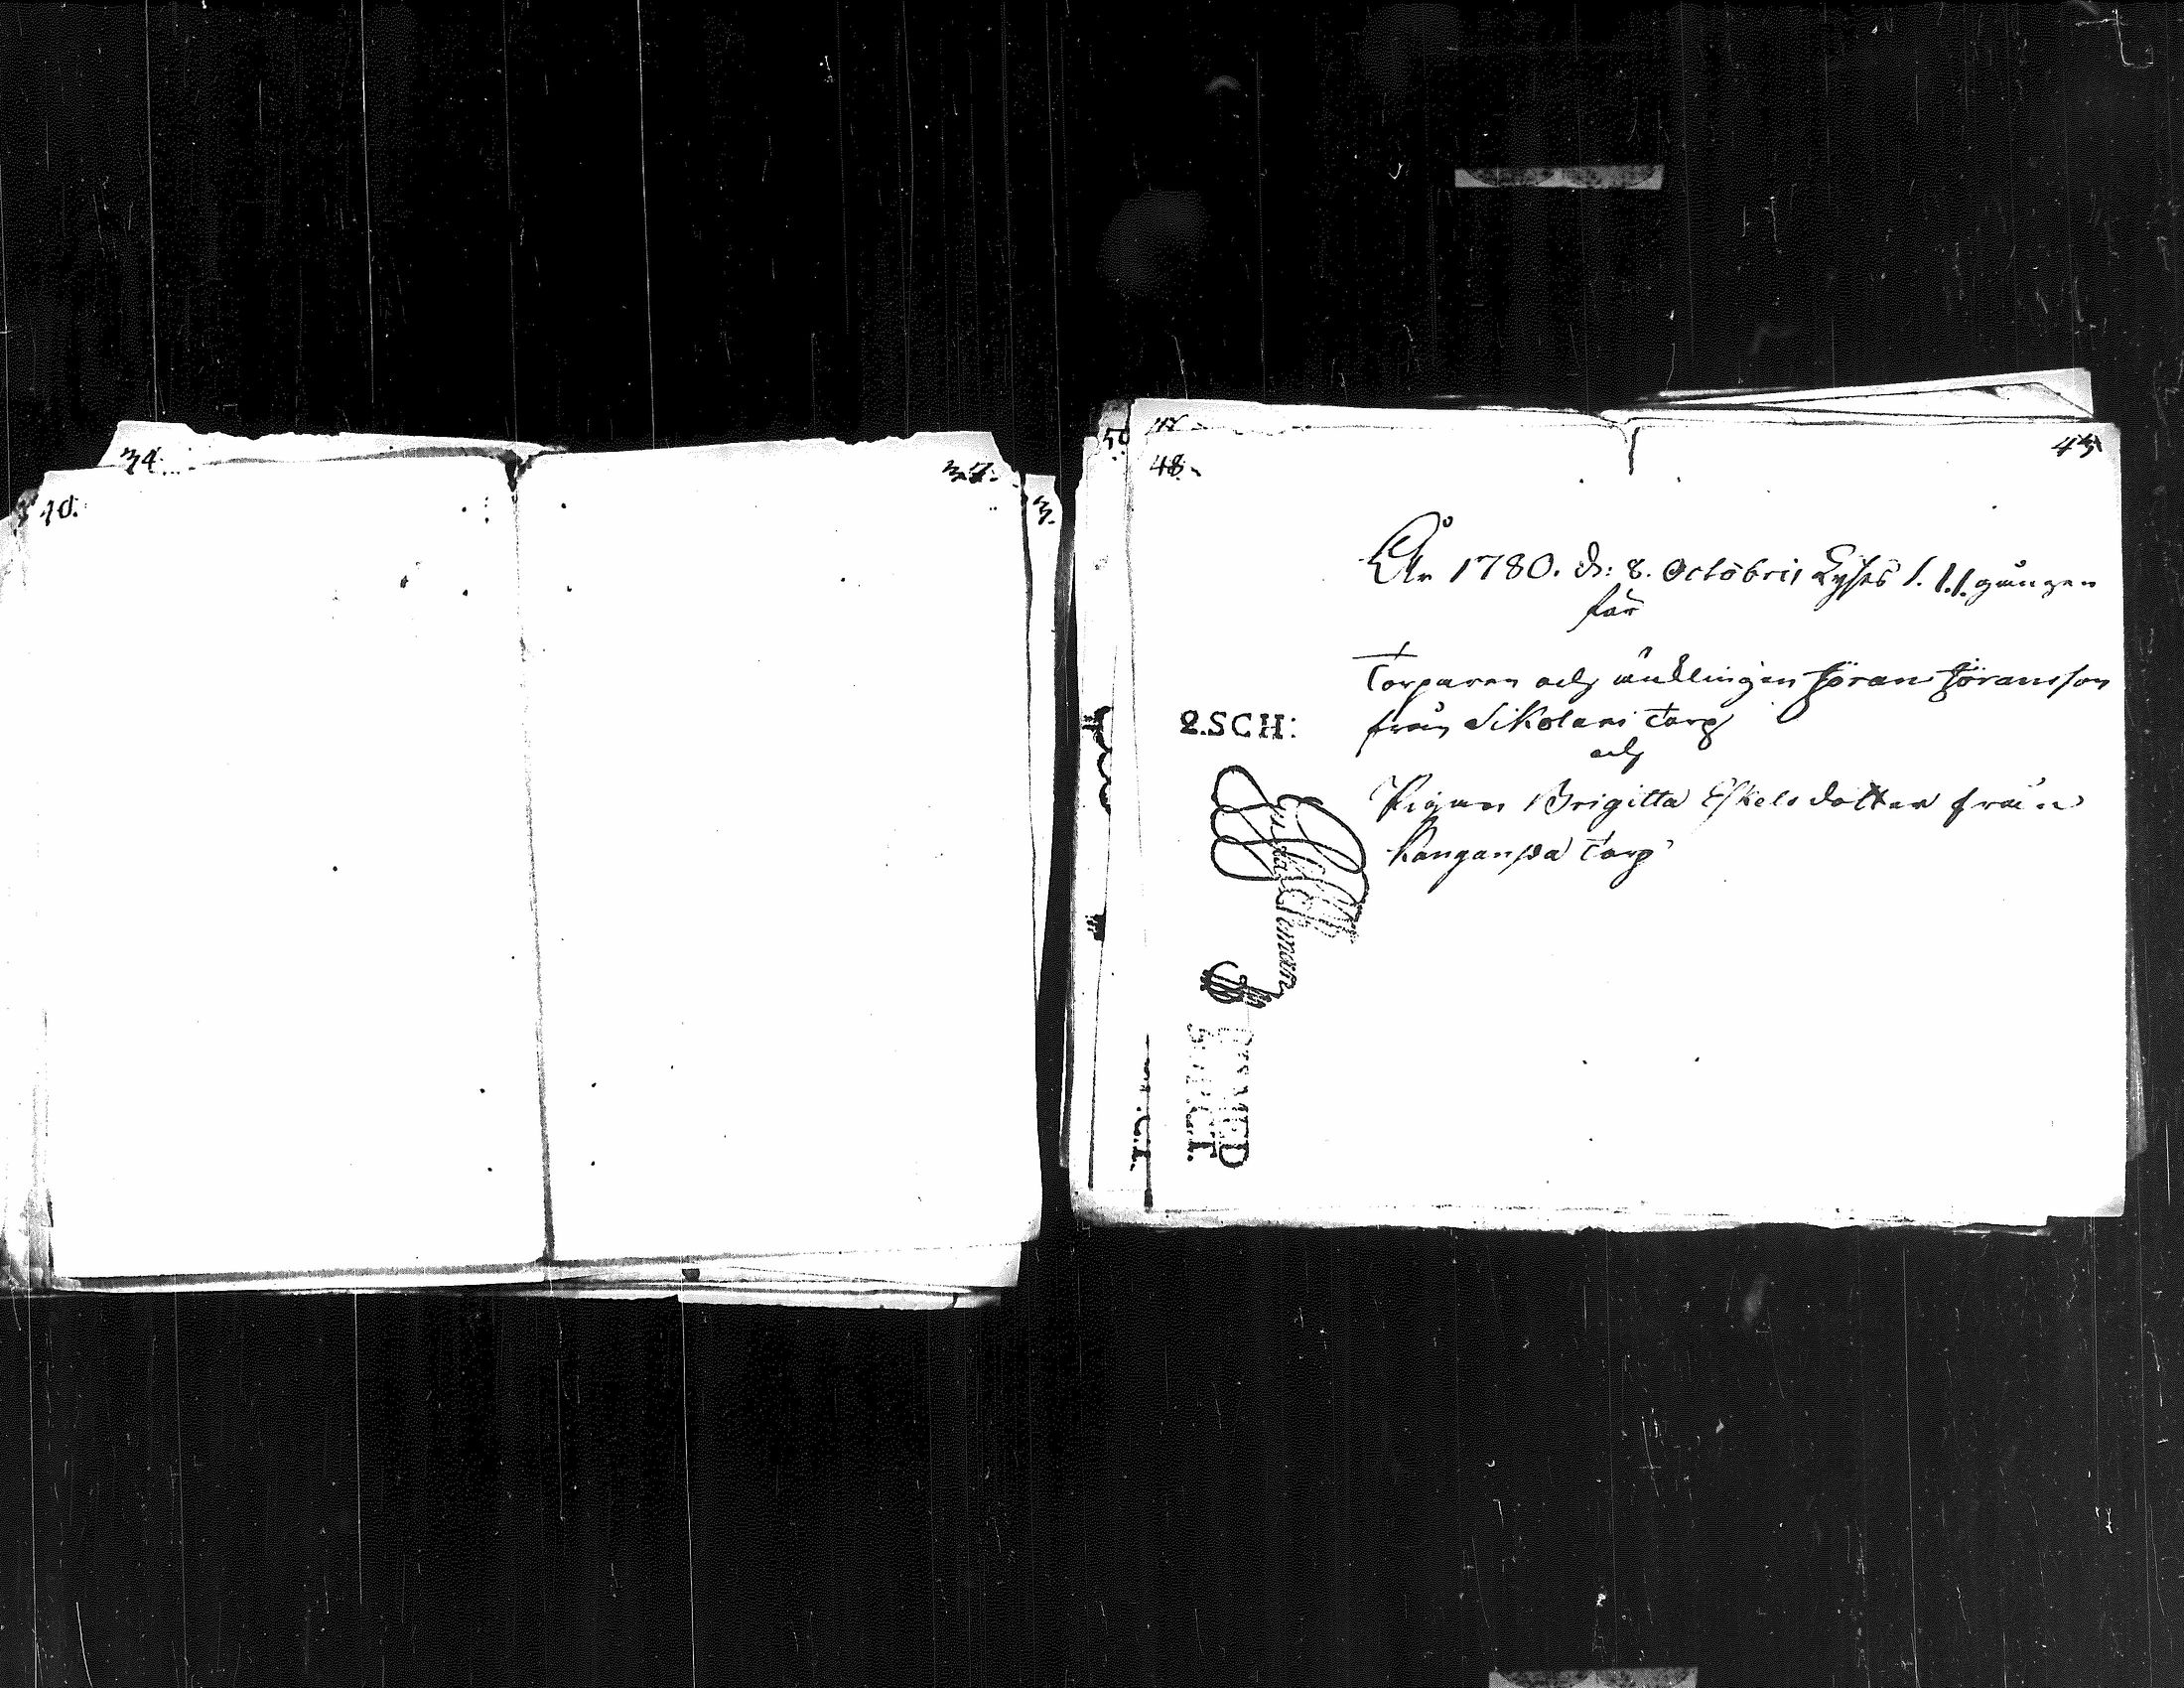 34.
37.
40.
3.
50
48.
43
År 1780. d: 8. Octobris Lyses 1. 1.1. gången
för
Torparen och änklingen Jöran Jöransson
från Sikolani torp
2.SCH:
och
Pigan Brigitta Eskelsdotter från
Kanganpä torp